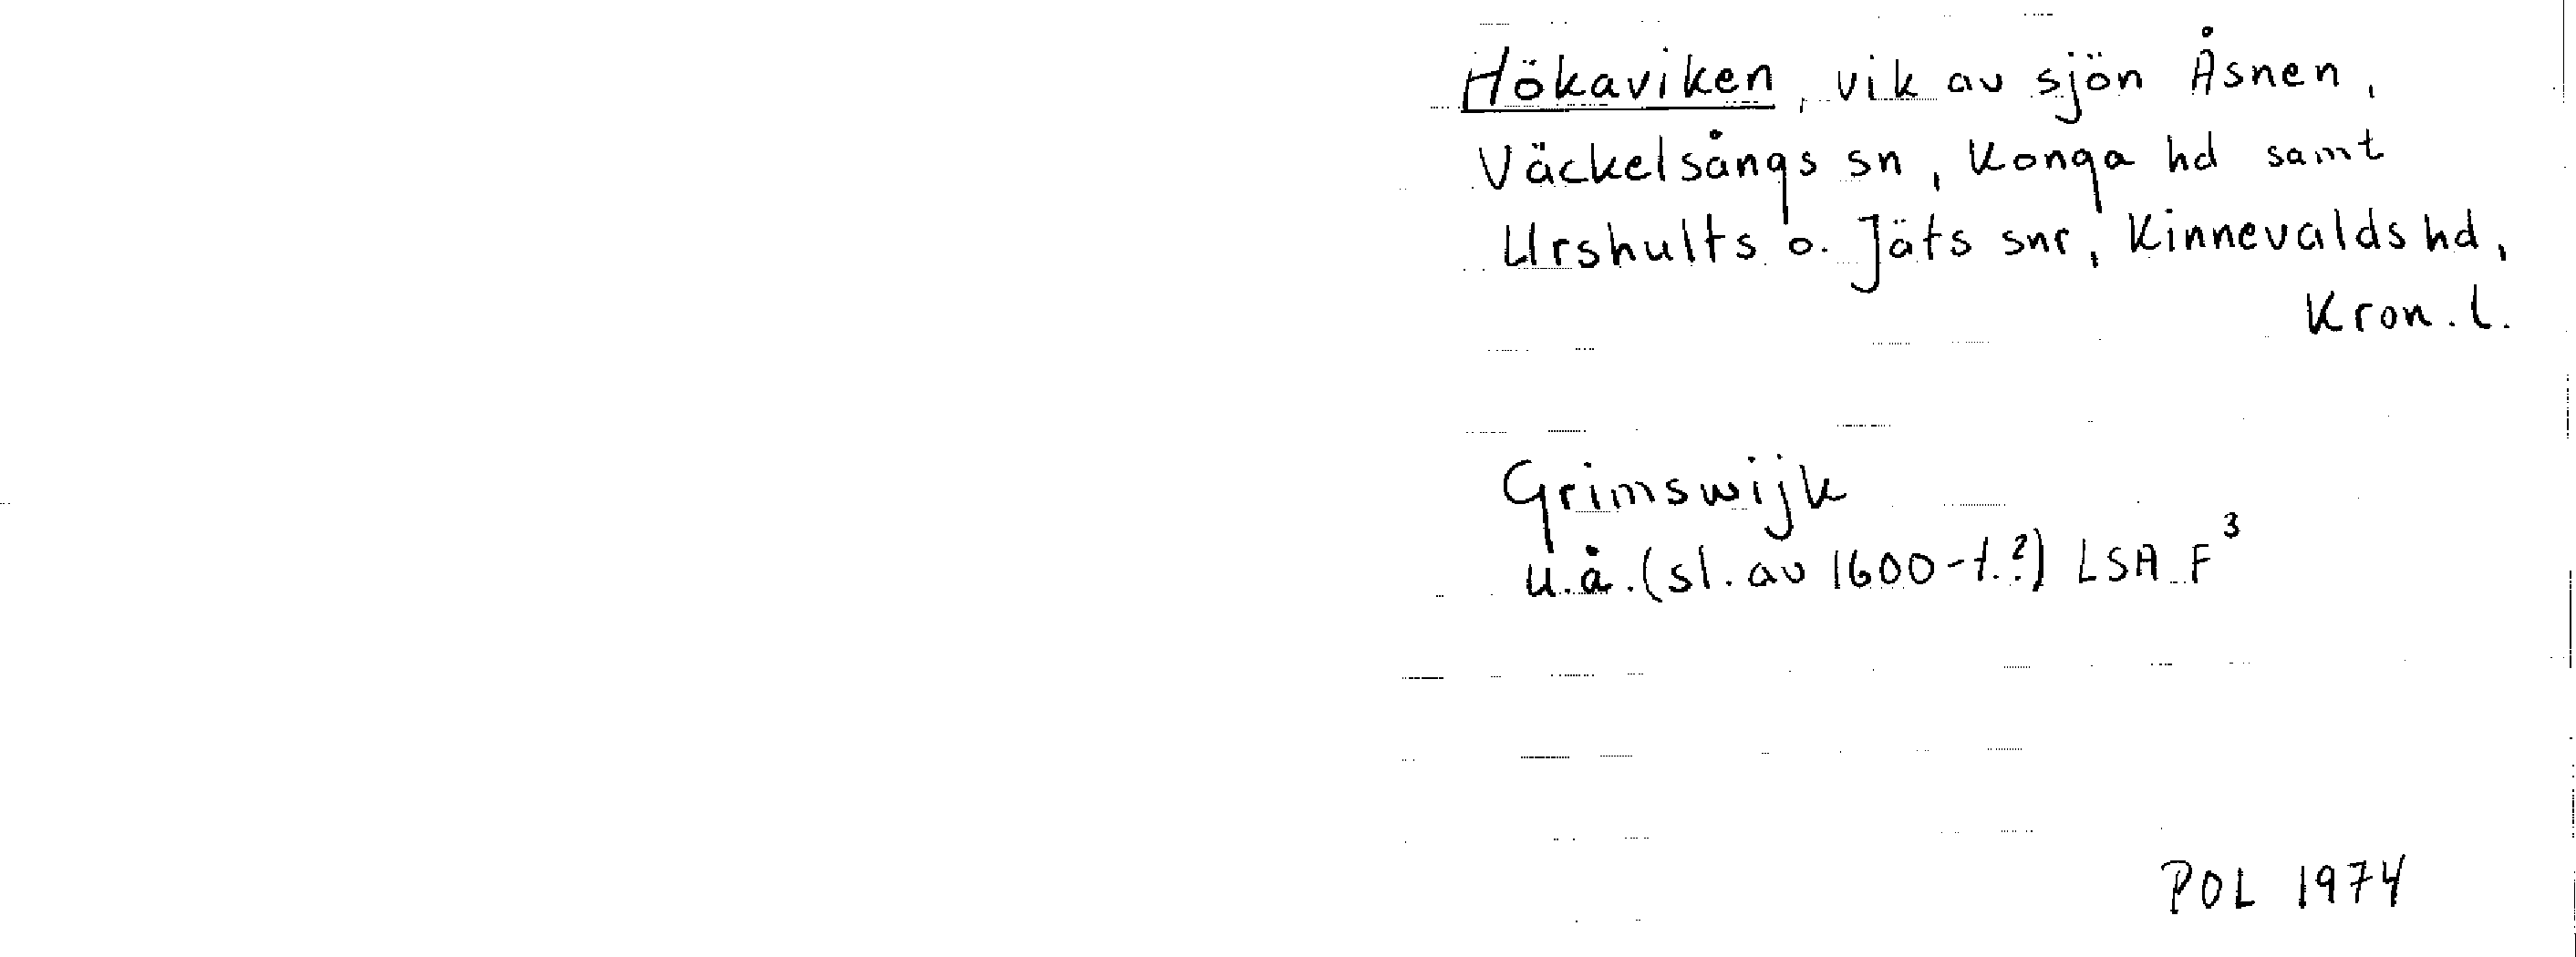 Hökaviken, vik av sjön Åsnen,
Väckelsångs sn, Konga hd samt
Urshults o. Jäts snr, Kinnevalds hd,
Kron. l.
Grimswijk
u.å. (sl. av 1600-t.?) LSA F³
POL 1974